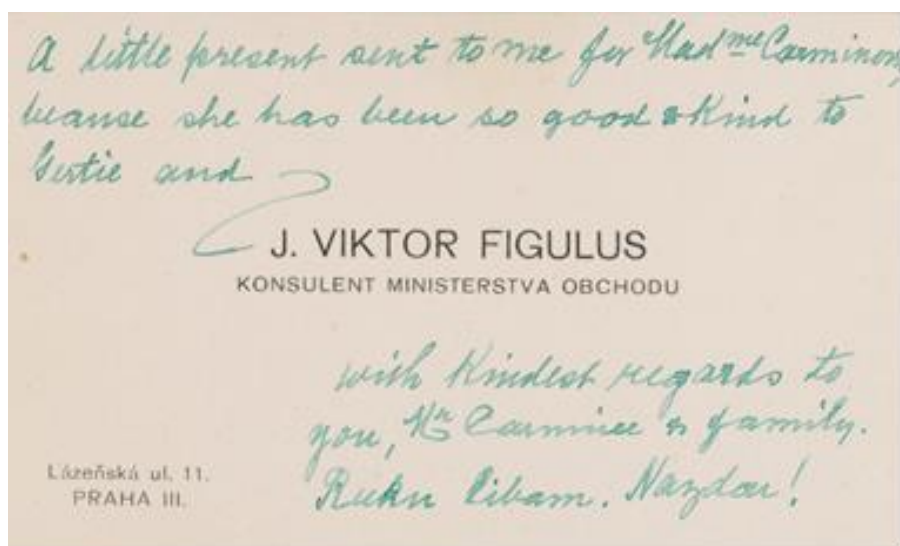 A little present sent to me for Mad^me
beause she has been so good & Kind to
Gertie and
J. VIKTOR FIGULUS
KONSULENT MINISTERSTVA OBCHODU
with Kindest regards to
you, Mr & family.
Ruku líbam. Nazdar!
Lázeňská ul. 11.
PRAHA III.